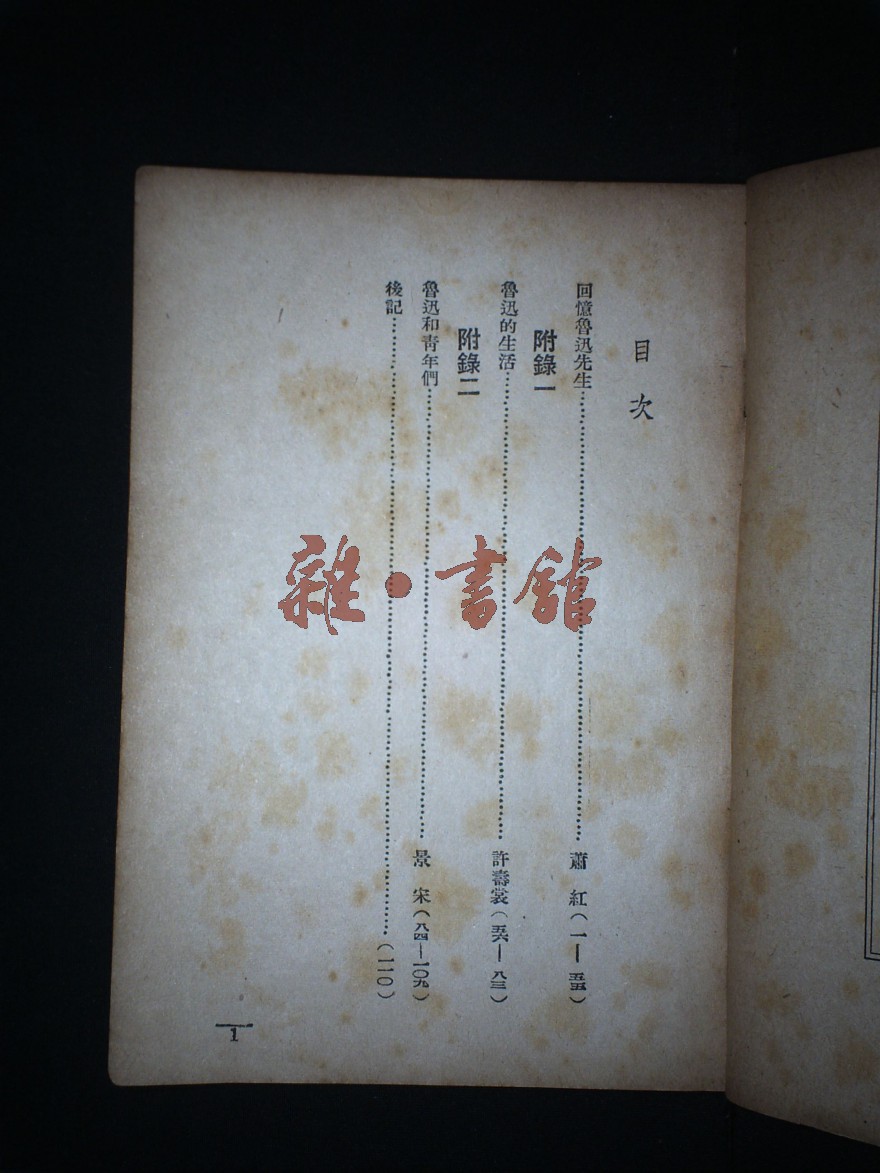 目次
回憶魯迅先生……蕭紅（一—五五）
附錄一
魯迅的生活……許壽裳（五六—八三）
附錄二
魯迅和靑年們……景宋（八四—一〇九）
後記……（一一〇）
1
雜·書館